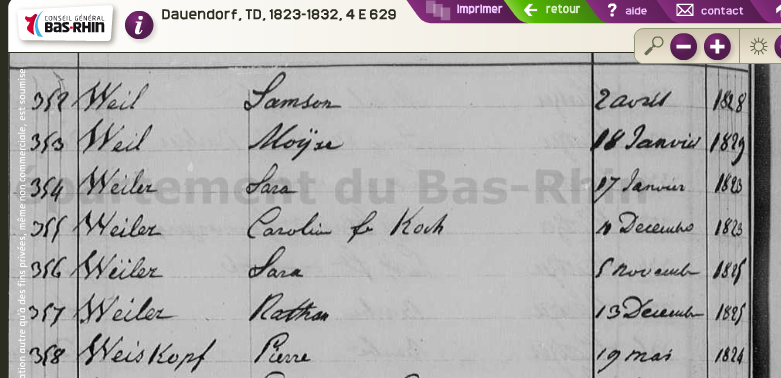 CONSEIL GÉNÉRAL
BAS-RHIN
Dauendorf, TD, 1823-1832, 4 E 629
imprimer
retour
? aide
contact
352 Weil Samson 2 avril 1828
353 Weil Moÿse 18 Janvier 1829
354 Weiler Sara 17 Janvier 1823
355 Weiler Carolin fe Koch Decembre 1823
356 Weiler Sara 5 novembre 1825
357 Weiler Nathan 13 Decembre 1825
358 Weis Kopf Pierre 19 mai 1824
partement du Bas-Rhin
ation autre qu'à des fins privées, même non commerciale, est soumise